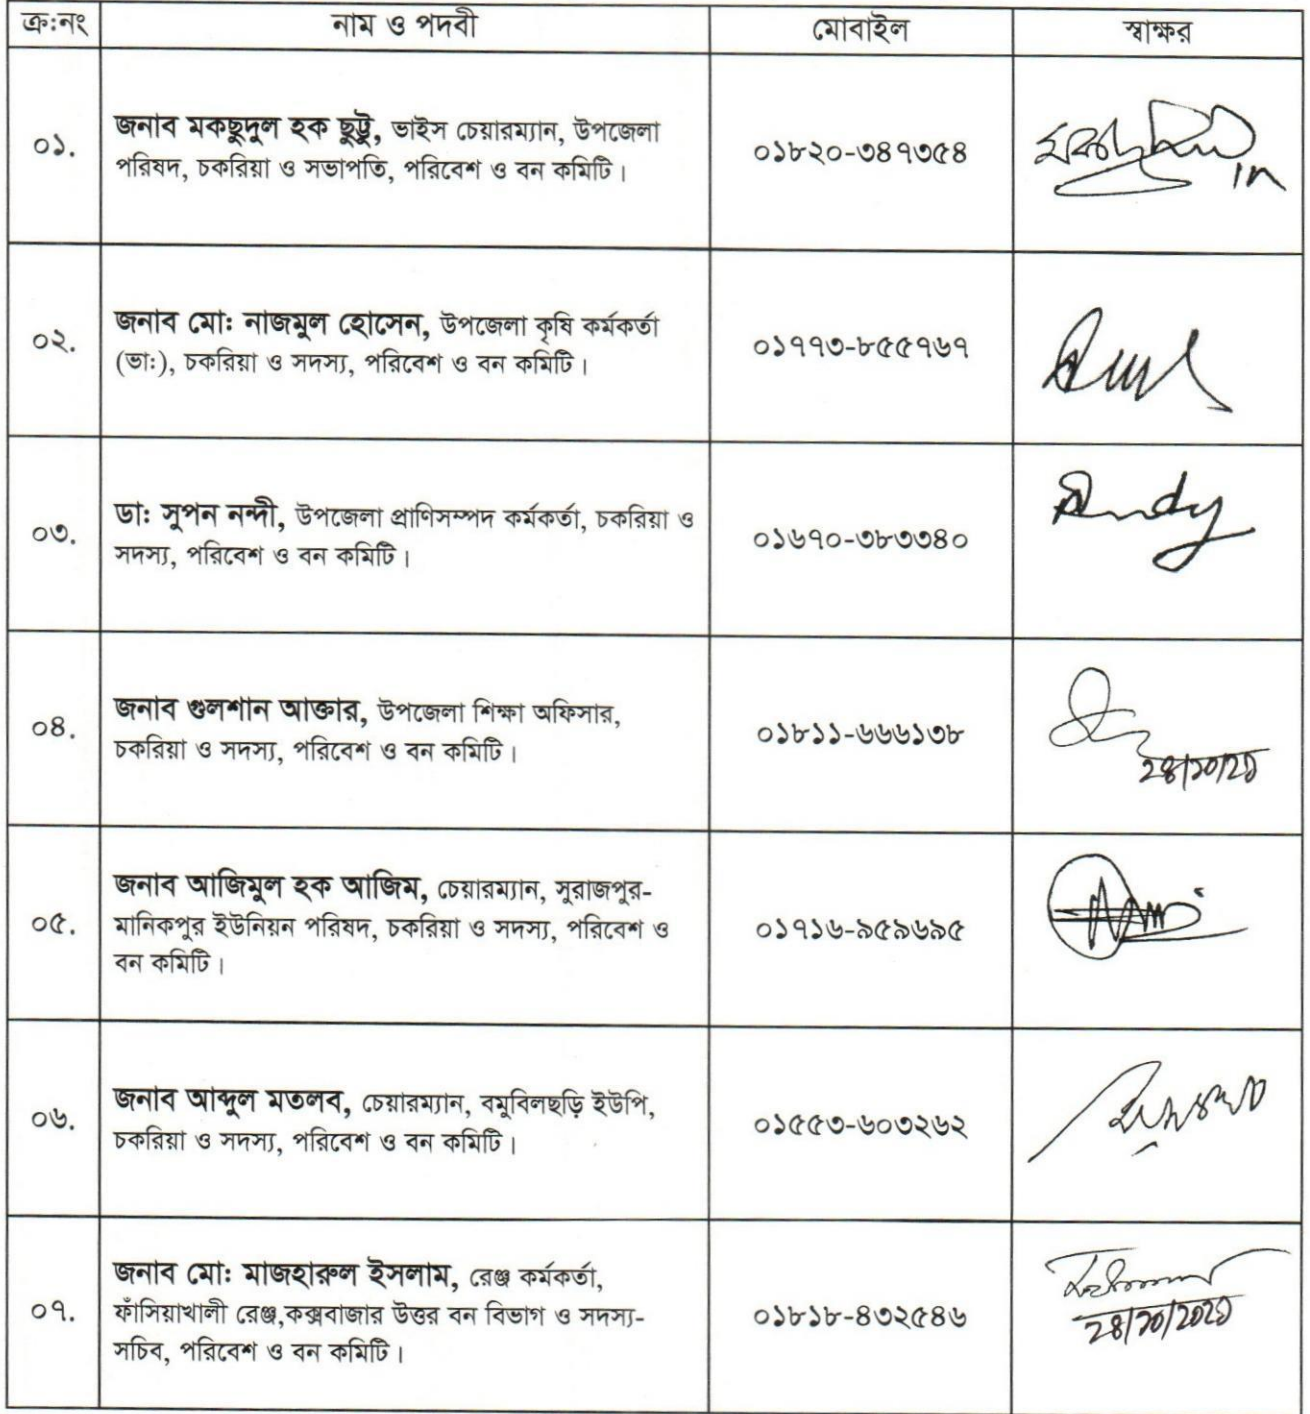 ক্র:নং নাম ও পদবী মোবাইল স্বাক্ষর
০১. জনাব মকছুদুল হক ছুট্টু, ভাইস চেয়ারম্যান, উপজেলা
পরিষদ, চকরিয়া ও সভাপতি, পরিবেশ ও বন কমিটি।
০১৮২০-৩৪৭৩৫৪
০২. জনাব মো: নাজমুল হোসেন, উপজেলা কৃষি কর্মকর্তা
(ভা:), চকরিয়া ও সদস্য, পরিবেশ ও বন কমিটি।
০১৭৭৩-৮৫৫৭৬৭
০৩. ডা: সুপন নন্দী, উপজেলা প্রাণিসম্পদ কর্মকর্তা, চকরিয়া ও
সদস্য, পরিবেশ ও বন কমিটি।
০১৬৭০-৩৮৩৩৪০
০৪. জনাব গুলশান আক্তার, উপজেলা শিক্ষা অফিসার,
চকরিয়া ও সদস্য, পরিবেশ ও বন কমিটি।
০১৮১১-৬৬৬১৩৮
০৫. জনাব আজিমুল হক আজিম, চেয়ারম্যান, সুরাজপুর-
মানিকপুর ইউনিয়ন পরিষদ, চকরিয়া ও সদস্য, পরিবেশ ও
বন কমিটি।
০১৭১৬-৯৫৯৬৯৫
০৬. জনাব আব্দুল মতলব, চেয়ারম্যান, বমুবিলছড়ি ইউপি,
চকরিয়া ও সদস্য, পরিবেশ ও বন কমিটি।
০১৫৫৩-৬০৩২৬২
০৭. জনাব মো: মাজহারুল ইসলাম, রেঞ্জ কর্মকর্তা,
ফাঁসিয়াখালী রেঞ্জ,কক্সবাজার উত্তর বন বিভাগ ও সদস্য-
সচিব, পরিবেশ ও বন কমিটি।
০১৮১৮-৪৩২৫৪৬